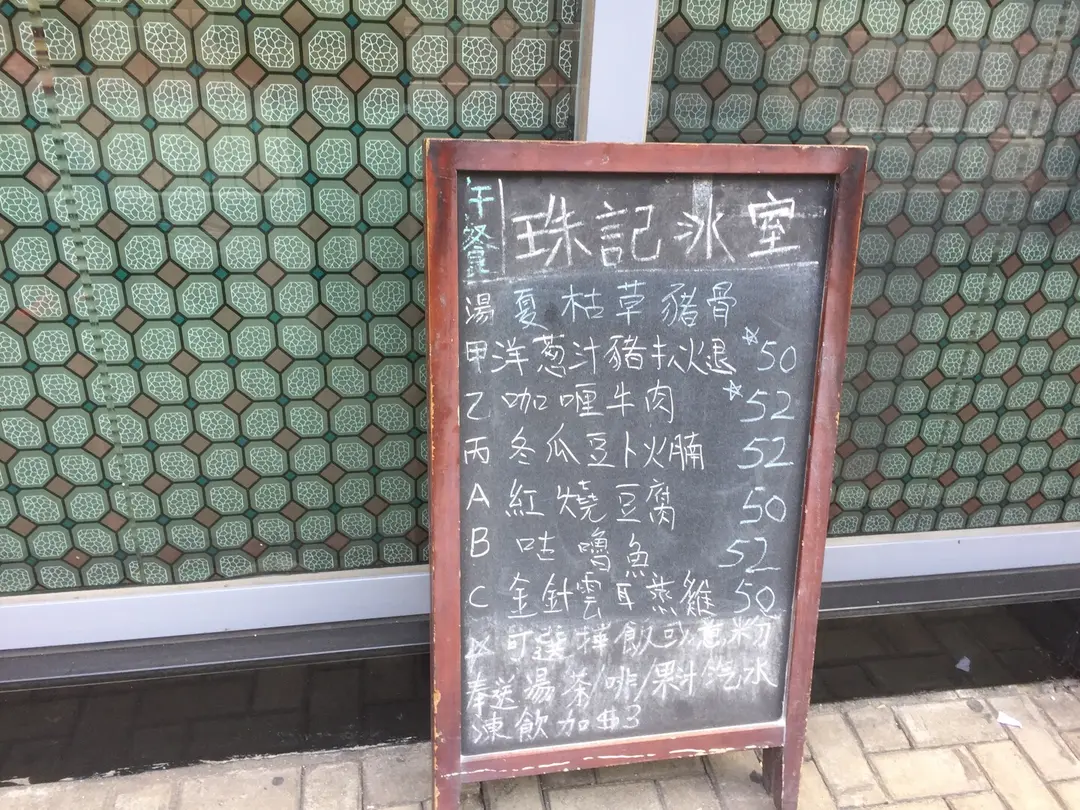 午餐
珠記冰室
湯 夏枯草豬骨
甲 洋葱汁豬扒火腿 *50
乙 咖喱牛肉 *52
丙 冬瓜豆卜火腩 52
A 紅燒豆腐 50
B 吐嚕魚 52
C 金針雲耳蒸雞 50
*可選擇飯或意粉
奉送湯 茶/啡/果汁汽水
凍飲加$3